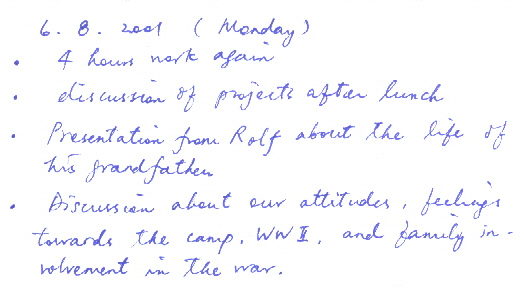 6. 8. 2001 (Monday)
• 4 hours work again
• discussion of projects after lunch
• Presentation from Rolf about the life of
his grandfather
• Discussion about our attitudes, feelings
towards the camp, WW II, and family in-
volvement in the war.